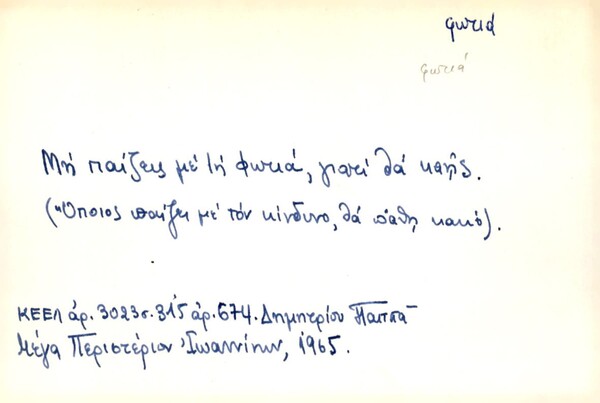 φωτιά
φωτιά
Μή παίζεις μέ τή φωτιά, γιατί θά καῆς.
(Ὅποιος παίζει μέ τόν κίνδυνο, θά πάθη κακό).
ΚΕΕΛ ἀρ. 3023 σ. 315 ἀρ. 674. Δημητρίου Παππᾶ
Μέγα Περιστέριον Ἰωαννίνων, 1965.